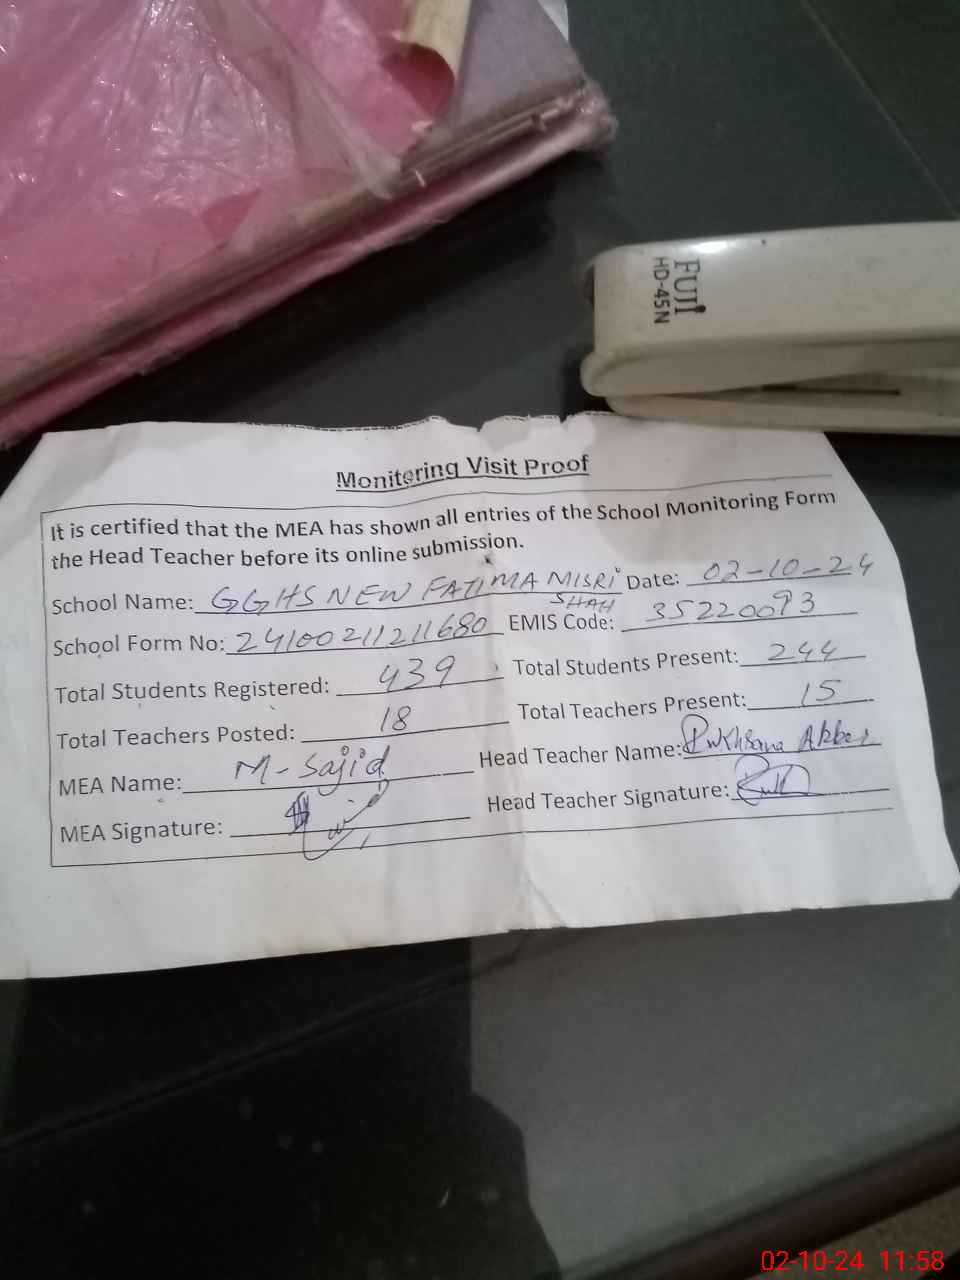 FUJI
HD-45N
Monitoring Visit Proof
It is certified that the MEA has shown all entries of the School Monitoring Form
the Head Teacher before its online submission.
School Name: GGHS NEW FATIMA MISRI SHAH Date: 02-10-24
School Form No: 24100211211680 EMIS Code: 35220093
Total Students Registered: 439 Total Students Present: 244
Total Teachers Posted: 18 Total Teachers Present: 15
MEA Name: M-Sajid Head Teacher Name: Rukhsana Akber
MEA Signature: Head Teacher Signature:
02-10-24 11:58